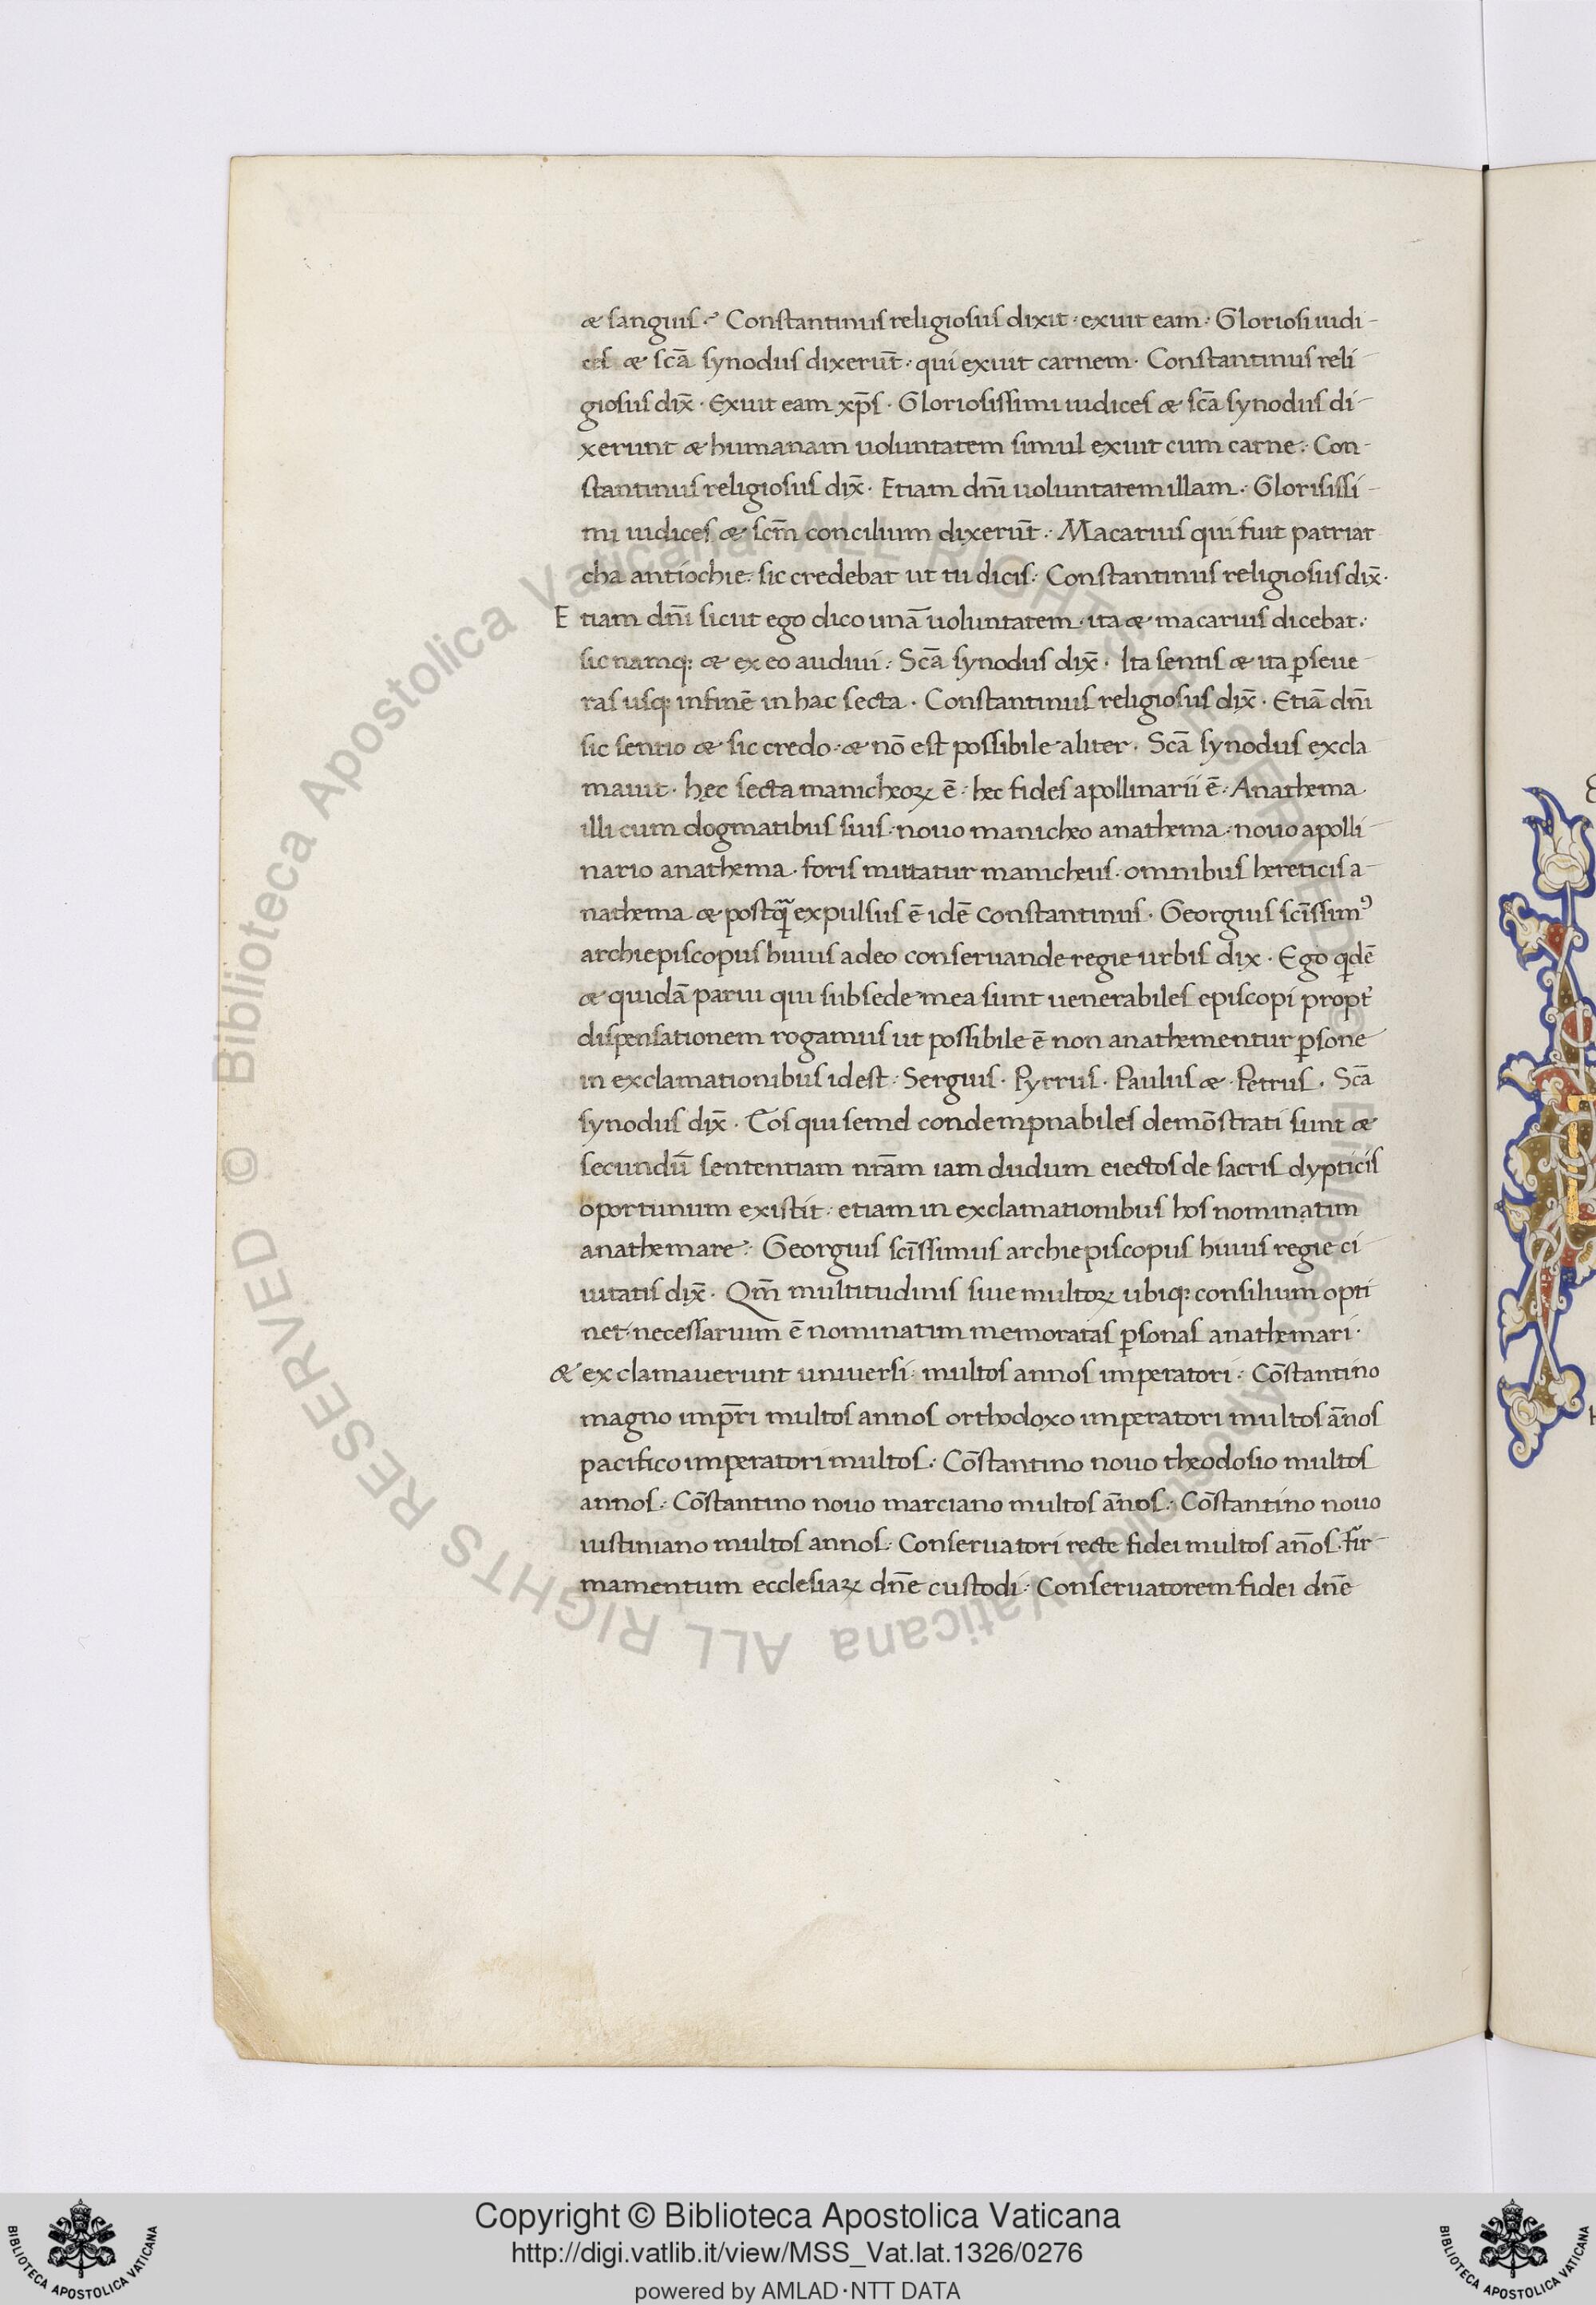 & sanguis? Constantinus religiosus dixit · exuit eam · Gloriosi iudi-
ces & sc̄a synodus dixerūt · qui exuit carnem · Constantinus reli-
giosus dix̄ · Exuit eam xp̄s · Gloriosissimi iudices & sc̄a synodus di-
xerunt & humanam uoluntatem simul exuit cum carne · Con-
stantinus religiosus dix̄ · Etiam dn̄i uoluntatem illam · Glorisissi-
mi iudices & sc̄m concilium dixerūt · Macarius qui fuit patriar
cha antiochie · sic credebat ut tu dicis · Constantinus religiosus dix̄ ·
Etiam dn̄i sicut ego dico unā uoluntatem · ita & macarius dicebat ·
sic namq; & ex eo audiui · Sc̄a synodus dix̄ · Ita sentis & ita ꝑseue-
ras usq; in finē in hac secta · Constantinus religiosus dix̄ · Etiā dn̄i
sic sentio & sic credo · & nō est possibile aliter · Sc̄a synodus excla
mauit · hęc secta manicheoꝝ ē · hec fides apollinarii ē · Anathema
illi cum dogmatibus suis · nouo manicheo anathema · nouo apolli-
nario anathema · foris mittatur manicheus · omnibus hereticis a-
nathema & postq̄ expulsus ē idē constantinus · Georgius sc̄issimꝰ
archiepiscopus huius a deo conseruande regie urbis dix · Ego qdē
& quidā parui qui sub sede mea sunt uenerabiles episcopi propt̓
dispensationem rogamus ut possibile ē non anathementur ꝑsone
in exclamationibus idest · Sergius · Pyrrus · Paulus & · Petrus · Sc̄a
synodus dix̄ · Eos qui semel condempnabiles demōstrati sunt &
secundū sententiam nr̄am iam dudum eiectos de sacris dypticis
oportunum existit · etiam in exclamationibus hos nominatim
anathemare · Georgius sc̄issimus archiepiscopus huius regie ci-
uitatis dix̄ · Qm̄ multitudinis siue multoꝝ ubiq; consilium opti
net · necessarium ē nominatim memoratas ꝑsonas anathemari ·
& exclamauerunt uniuersi · multos annos imperatori · Cōstantino
magno imp̄ri multos annos orthodoxo imperatori multos ān̄os
pacifico imperatori multos · Cōstantino nouo theodosio multos
annos · Cōstantino nouo marciano multos ān̄os · Cōstantino nouo
iustiniano multos annos · Conseruatori recte fidei multos an̄os · fir-
mamentum ecclesiaꝝ dn̄e custodi · Conseruatorem fidei dn̄e
© Biblioteca Apostolica Vaticana ALL RIGHTS RESERVED © Biblioteca Apostolica Vaticana ALL RIGHTS RESERVED
Copyright © Biblioteca Apostolica Vaticana
http://digi.vatlib.it/view/MSS_Vat.lat.1326/0276
powered by AMLAD·NTT DATA
BIBLIOTECA APOSTOLICA VATICANA
BIBLIOTECA APOSTOLICA VATICANA